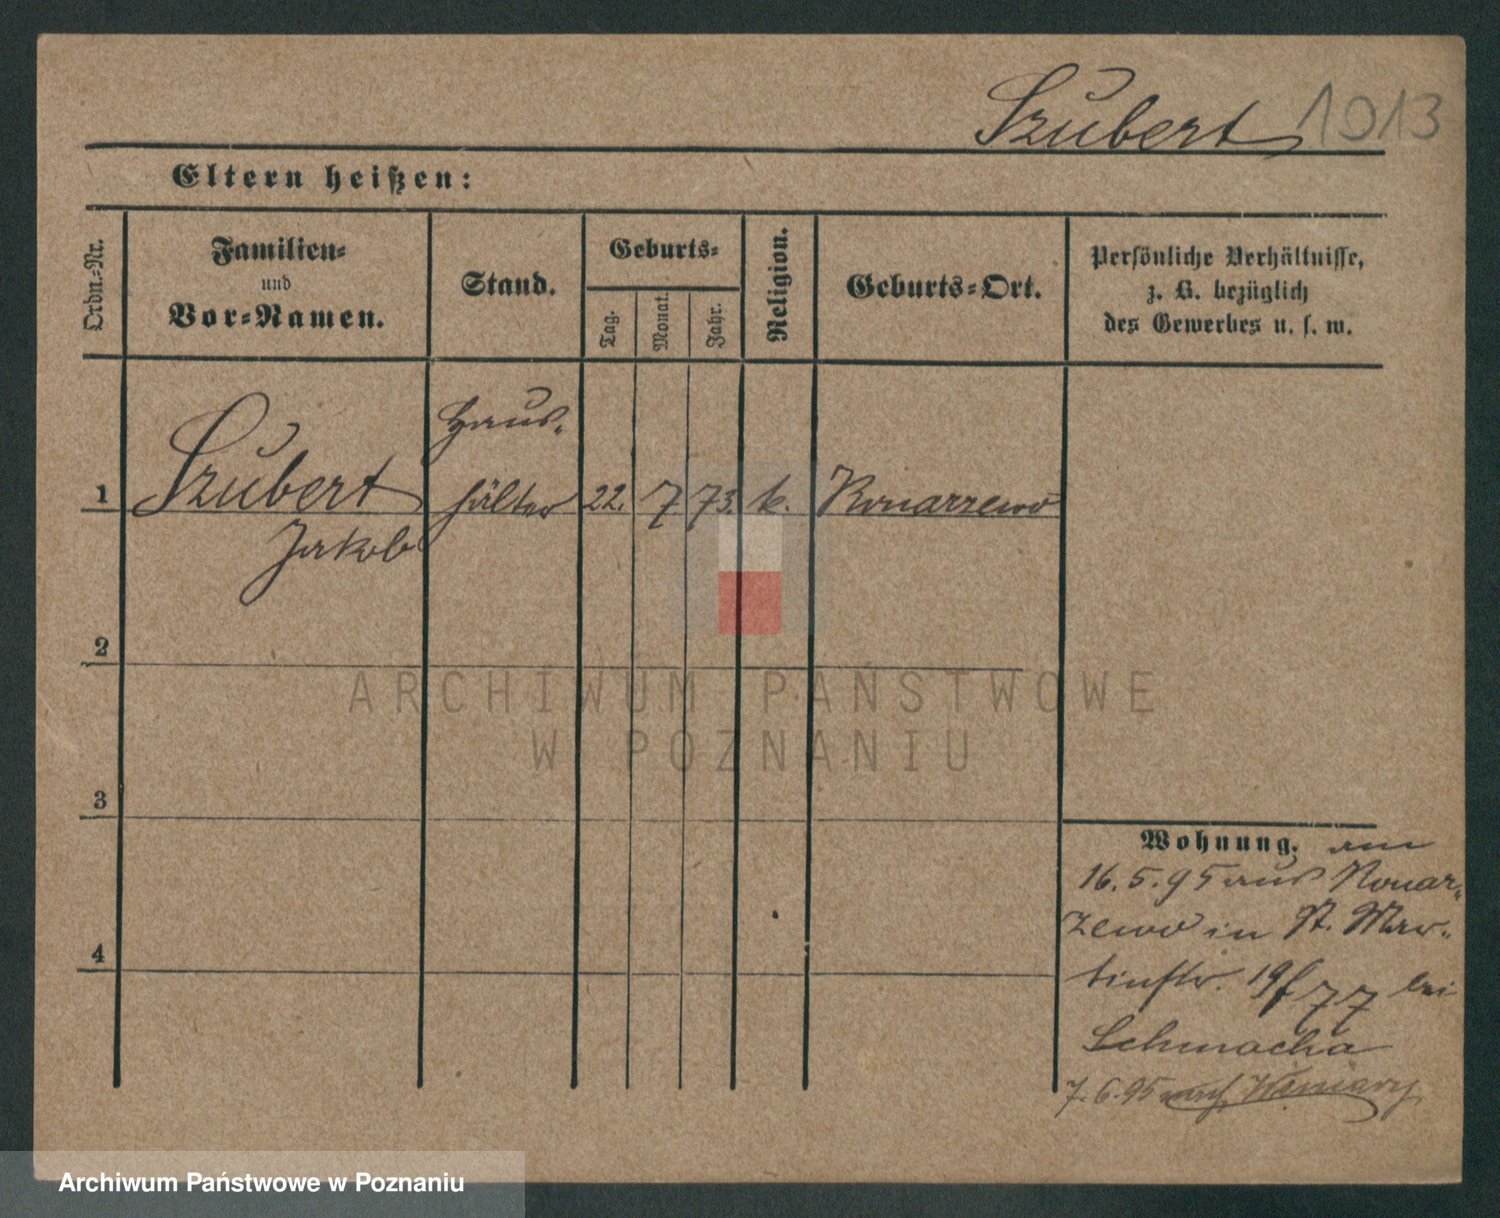 Szubert 1013
Eltern heißen:
Ordn.-Nr.
Familien-
und
Vor-Namen.
Stand.
Geburts-
Tag.
Monat.
Jahr.
Religion.
Geburts-Ort.
Persönliche Verhältnisse,
z. B. bezüglich
des Gewerbes u. s. w.
Haus-
1 Szubert hälter 22. 7 73. k. Konarzewo
Jakob
2
3
4
Wohnung. am
16.5.95 aus Konar-
zewo in St. Mar-
tinstr. 19/77 bei
Schmacha
7.6.95 nach Winiary
ARCHIWUM PAŃSTWOWE
W POZNANIU
Archiwum Państwowe w Poznaniu